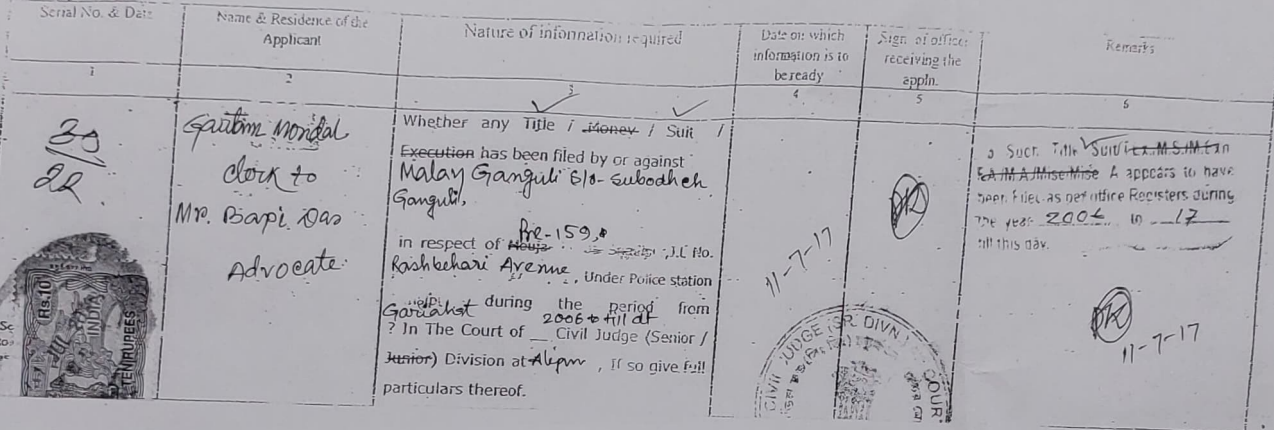 Serial No. & Date
Name & Residence of the
Applicant
Nature of information required
Date on which
information is to
be ready
Sign. of officer
receiving the
appln.
Remarks
1
2
3
4
5
6
22
Gautam Mondal
Clerk to
Mr. Bapi Das
Advocate
Whether any Title / Money / Suit /
Execution has been filed by or against
Malay Ganguli S/o- Subodheh
Ganguli,
Pre-159,
in respect of Mouja J.L No.
Rashbehari Avenue, Under Police station
Gariahat during the period from
2006 to till dt
? In The Court of __ Civil Judge (Senior /
Junior) Division at Alipur, If so give full
particulars thereof.
11-7-17
Such Title Suit
A appears to have
been Filed as per office Registers during
the year 2006 to 17
till this day.
11-7-17
Rs.10
INDIA
TEN RUPEES
CIVIL JUDGE (SR. DIVN.) COURT